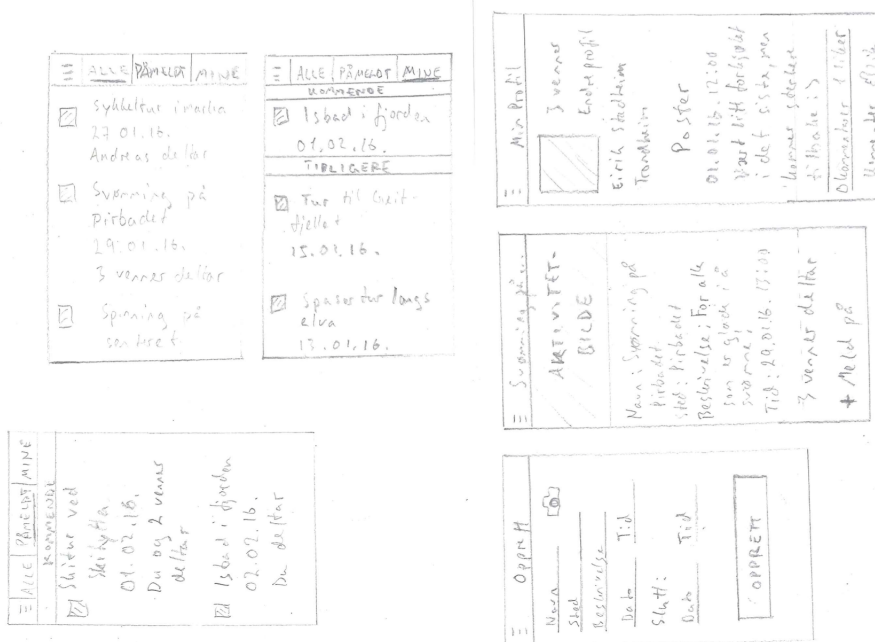 ALLE PÅMELDT MINE
Sykkeltur i marka
27.01.16.
Andreas deltar
Svømming på
Pirbadet
29.01.16.
3 venner deltar
Spinning på
senteret
ALLE PÅMELDT MINE
KOMMENDE
Isbad i fjorden
01.02.16.
TIDLIGERE
Tur til Geit-
fjellet
15.01.16.
Spasertur langs
elva
13.01.16.
ALLE PÅMELDT MINE
KOMMENDE
Skitur ved
Skihytta
01.02.16.
Du og 2 venner
deltar
Isbad i fjorden
02.02.16.
Du deltar
Min Profil
3 venner
Endre profil
Eirik Stadheim
Trondheim
Poster
01.01.16. 12:00
Vært litt forkjølet
i det siste, men
kommer sterkere
tilbake :)
0 kommentarer 1 liker
Svømming på...
AKTIVITET-
BILDE
Navn: Svømming på
Pirbadet
Sted: Pirbadet
Beskrivelse: For alle
som er glad i å
svømme!
Tid: 29.01.16. 17:00
3 venner deltar
+ Meld på
Opprett
Navn
Sted
Beskrivelse
Dato Tid
Slutt:
Dato Tid
OPPRETT